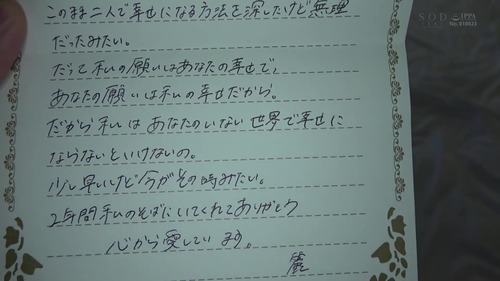 SOD IPPA
No. 010823
このまま二人で幸せになる方法を探したけど無理
だったみたい。
だって私の願いはあなたの幸せで、
あなたの願いは私の幸せだから。
だから私はあなたのいない世界で幸せに
ならないといけないの。
少し早いけど今がその時みたい。
2年間私のそばにいてくれてありがとう
心から愛しています。